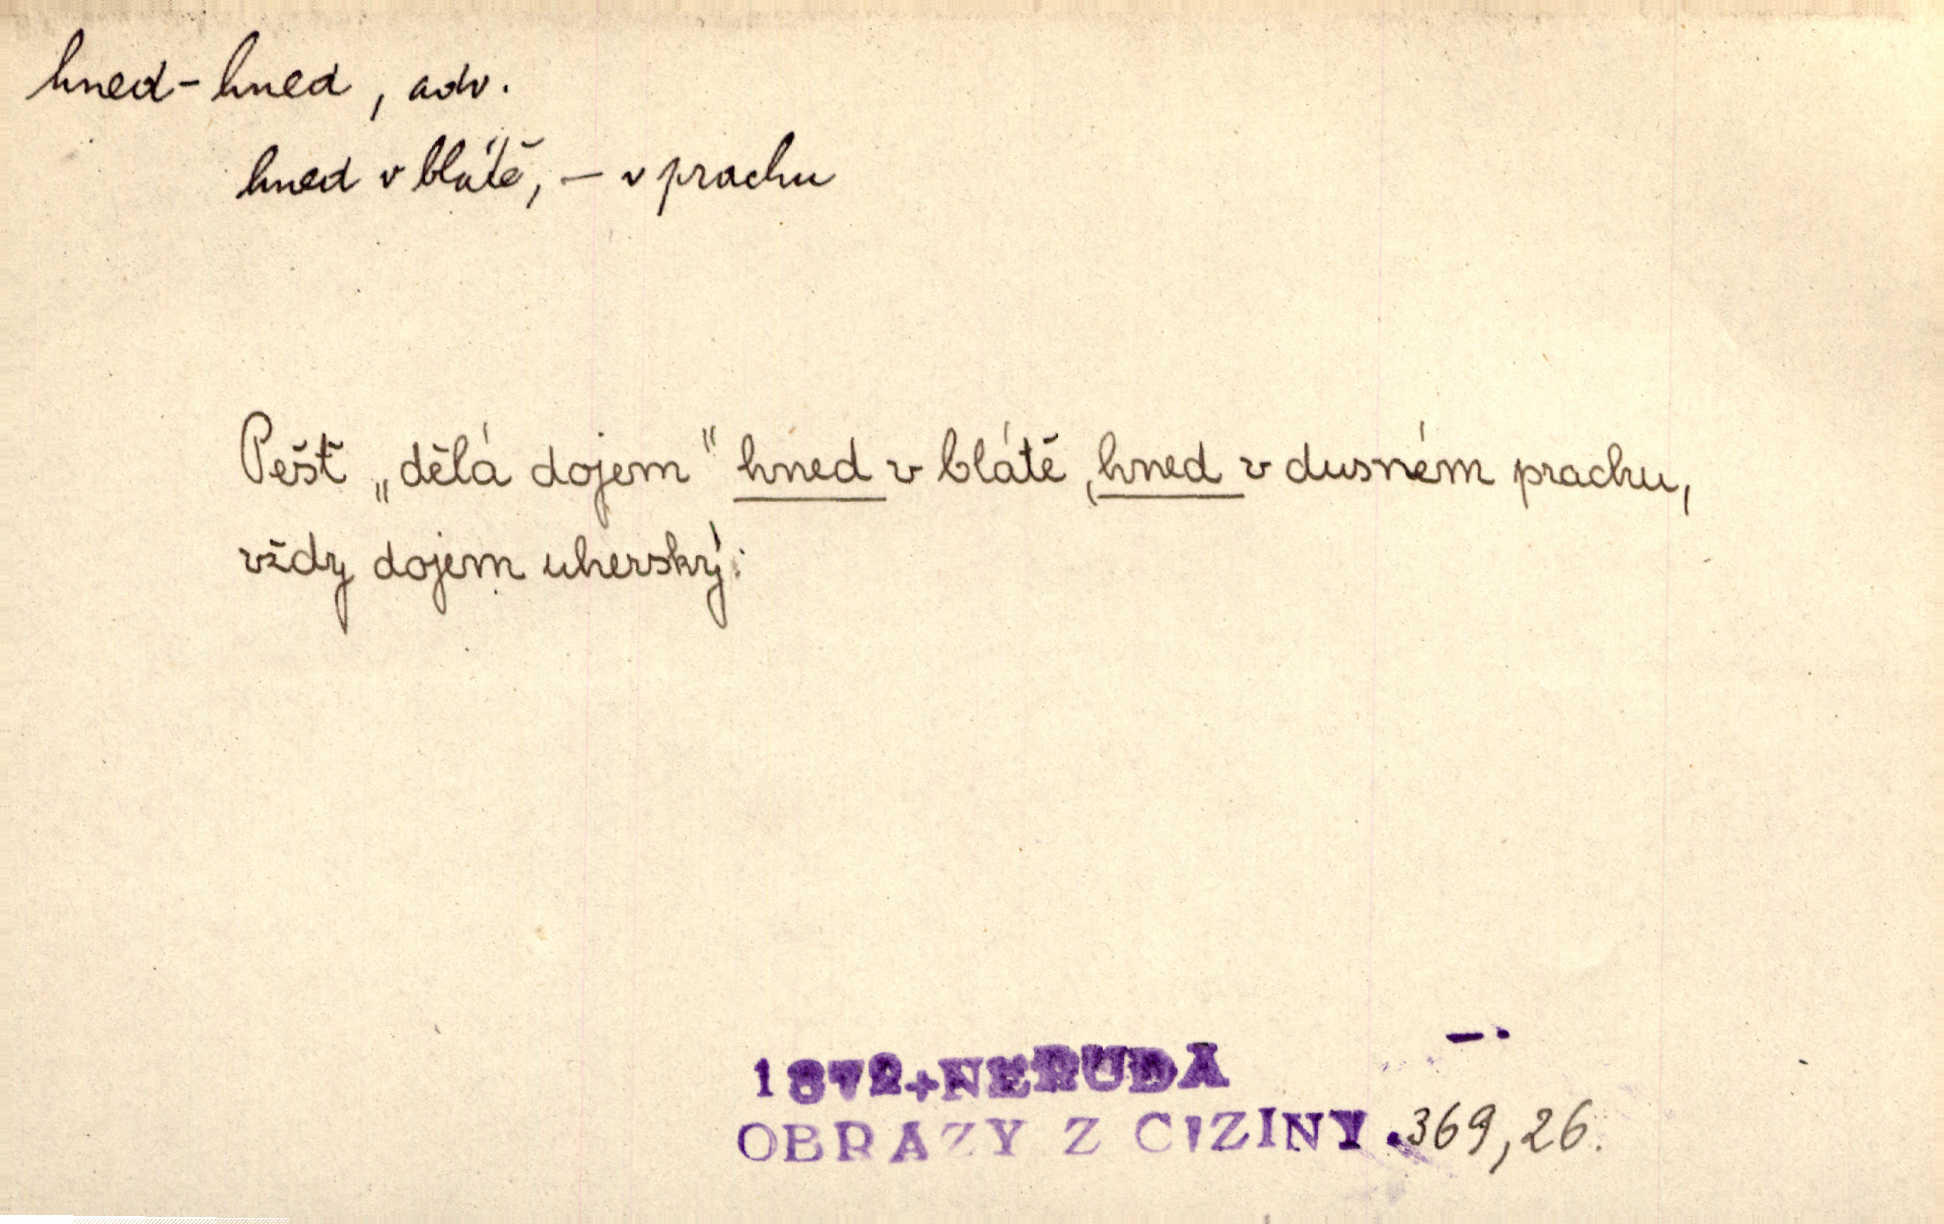 hned-hned, adv.
hned v blátě, – v prachu
Pešť „dělá dojem" hned v blátě, hned v dusném prachu,
vždy dojem uherský:
1872+NERUDA
OBRAZY Z CIZINY. 369, 26.